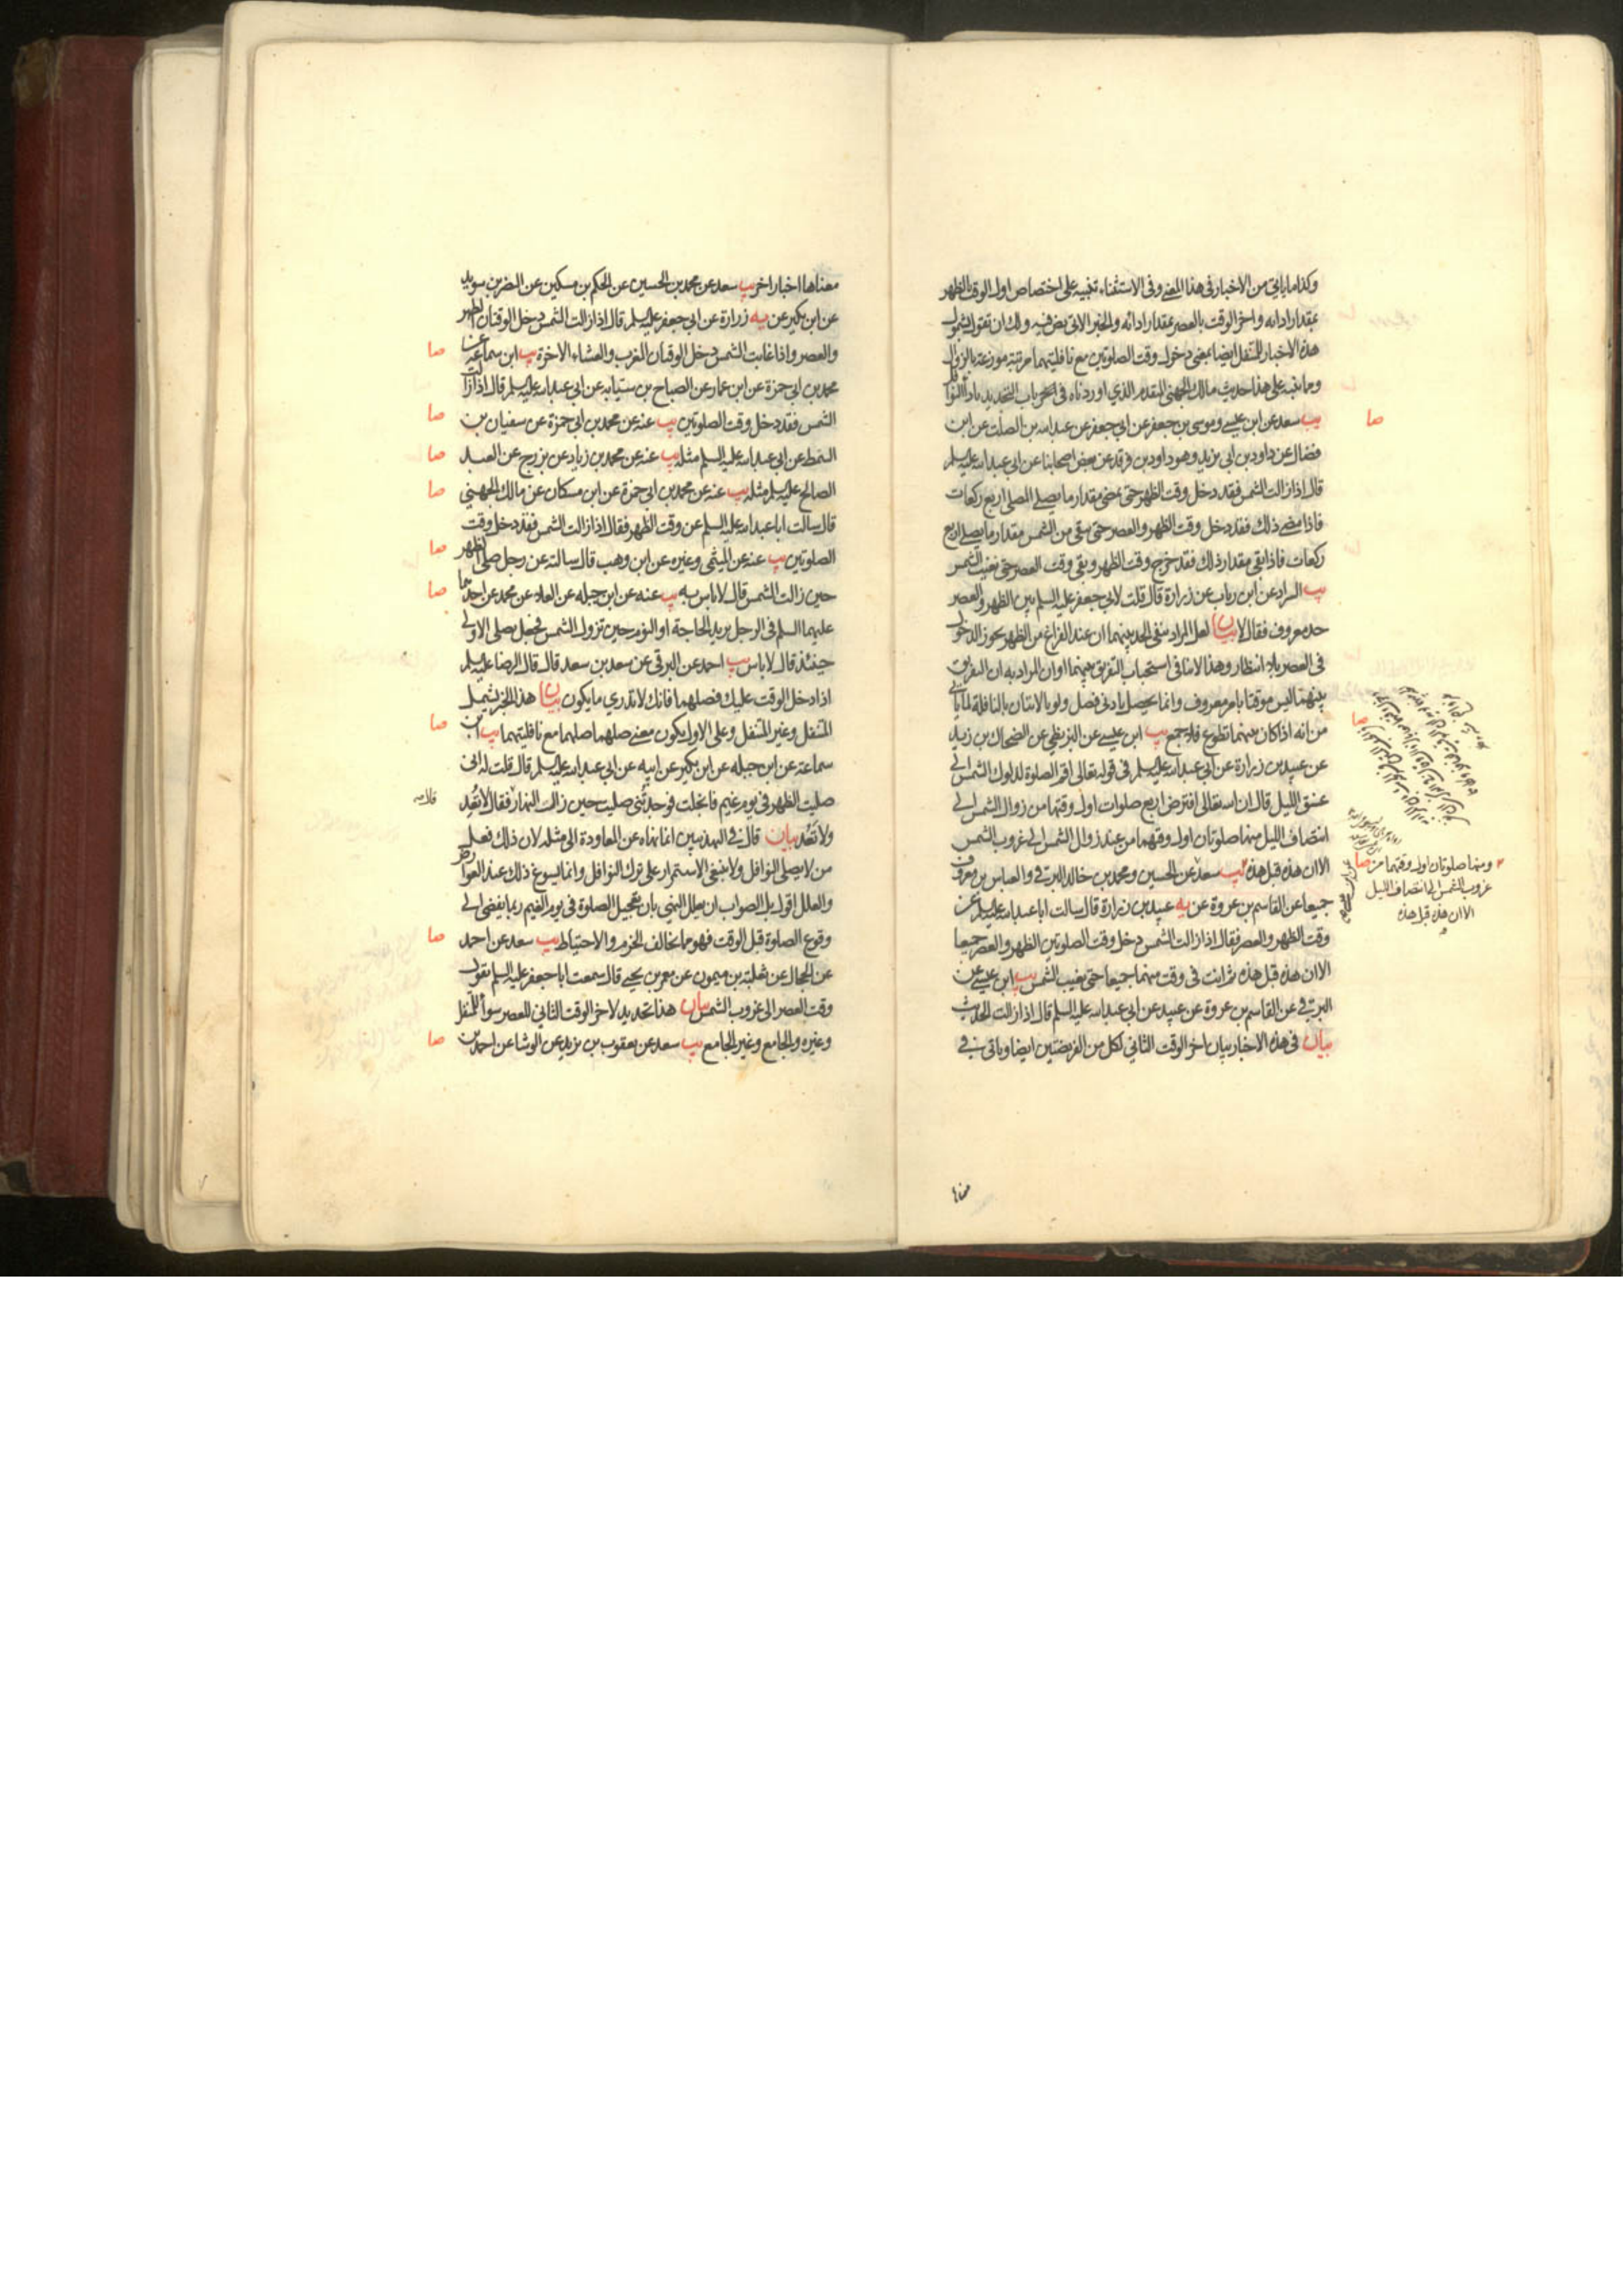 وكذا ما ياتي من الاخبار في هذا المعنى وفي الاستثناء تنبيه على اختصاص اول الوقت بالظهر
بمقدار ادائه واخر الوقت بالعصر بمقدار ادائه والخبر الاتي نص فيه ولك ان تقول بشمول
هذه الاخبار للمتنفل ايضا بمعنى دخول وقت الصلوتين مع نافليتهما مرتبة موزعة بالزوال
وما نبه على هذا حديث مالك الجهني المتقدم الذي اوردناه في اخر باب التحديد باداء النوافل
يب سعد عن ابن عيسى وموسى بن جعفر عن ابي جعفر عن عبد الله بن الصلت عن ابن
صا
فضال عن داود بن ابي يزيد وهو داود بن فرقد عن بعض اصحابنا عن ابي عبد الله عليه السلم
قال اذا زالت الشمس فقد دخل وقت الظهر حتى يمضي مقدار ما يصلي المصلي اربع ركعات
فاذا مضى ذلك فقد دخل وقت الظهر والعصر حتى يبقى من الشمس مقدار ما يصلي اربع
ركعات فاذا بقي مقدار ذلك فقد خرج وقت الظهر وبقي وقت العصر حتى تغيب الشمس
يب السراد عن ابن رباب عن زرارة قال قلت لابي جعفر عليه السلم بين الظهر والعصر
حد معروف فقال لا بيان لعل المراد بنفي الحد بينهما ان عند الفراغ من الظهر يجوز الدخول
في العصر بلا انتظار وهذا لا ينافي استحباب التفريق بينهما او ان المراد به ان التفريق
بينهما ليس موقتا بامر معروف وانما يحصل بادنى فصل ولو بالاتيان بالنافلة لما ياتي
من انه اذا كان بينهما تطوع فلا جمع يب ابن عيسى عن البزنطي عن الضحاك بن زيد
صا
عن عبيد بن زرارة عن ابي عبد الله عليه السلم في قوله تعالى اقم الصلوة لدلوك الشمس الى
غسق الليل قال ان الله تعالى افترض اربع صلوات اول وقتها من زوال الشمس الى
انتصاف الليل منها صلوتان اول وقتهما من عند زوال الشمس الى غروب الشمس
الا ان هذه قبل هذه يب سعد عن الحسين ومحمد بن خالد البرقي والعباس بن معروف
صا
ومنها صلوتان اول وقتهما من
غروب الشمس الى انتصاف الليل
الا ان هذه قبل هذه
جميعا عن القاسم بن عروة عن يه عبيد بن زرارة قال سالت ابا عبد الله عليه السلم عن
وقت الظهر والعصر فقال اذا زالت الشمس دخل وقت الصلوتين الظهر والعصر جميعا
الا ان هذه قبل هذه ثم انت في وقت منهما جميعا حتى تغيب الشمس يب ابن عيسى عن
البرقي عن القاسم بن عروة عن عبيد عن ابي عبد الله عليه السلم قال اذا زالت الحديث
بيان في هذه الاخبار بيان اخر الوقت الثاني لكل من الفريضتين ايضا وياتي في
معناها
معناها اخبار اخر يب سعد عن محمد بن الحسين عن الحكم بن مسكين عن النضر بن سويد
عن ابن بكير عن يه زرارة عن ابي جعفر عليه السلم قال اذا زالت الشمس دخل الوقتان الظهر
والعصر واذا غابت الشمس دخل الوقتان المغرب والعشاء الاخرة يب ابن سماعة عن
صا
محمد بن ابي حمزة عن ابن عمار عن الصباح بن سيابه عن ابي عبد الله عليه السلم قال اذا زالت
الشمس فقد دخل وقت الصلوتين يب عنه عن محمد بن ابي حمزة عن سفيان بن
صا
السمط عن ابي عبد الله عليه السلم مثله يب عنه عن محمد بن زياد عن بزرج عن العبد
صا
الصالح عليه السلم مثله يب عنه عن محمد بن ابي حمزة عن ابن مسكان عن مالك الجهني
صا
قال سالت ابا عبد الله عليه السلم عن وقت الظهر فقال اذا زالت الشمس فقد دخل وقت
الصلوتين يب عنه عن الميثمي وغيره عن ابن وهب قال سالته عن رجل صلى الظهر
صا
حين زالت الشمس قال لا باس به يب عنه عن ابن جبله عن العلاء عن محمد عن احدهما
صا
عليهما السلم في الرجل يريد الحاجة او النوم حين تزول الشمس فجعل يصلي الاولى
حينئذ قال لا باس يب احمد عن البرقي عن سعد بن سعد قال قال الرضا عليه السلم
اذا دخل الوقت عليك فصلهما فانك لا تدري ما يكون بيان هذا الخبر يشمل
المتنفل وغير المتنفل وعلى الاول يكون معنى صلهما صلهما مع نافليتهما يب ابن
صا
سماعة عن ابن جبله عن ابن بكير عن ابيه عن ابي عبد الله عليه السلم قال قلت له اني
صليت الظهر في يوم غيم فانجلت فوجدتني صليت حين زالت النهار فقال لا تُعِد
ولا تَعُد بيان قال في التهذيبين انما نهاه عن المعاودة الى مثله لان ذلك فعل
من لا يصلي النوافل ولا ينبغي الاستمرار على ترك النوافل وانما يسوغ ذلك عند العوارض
والعلل اقول بل الصواب ان يعلل النهي بان تعجيل الصلوة في يوم الغيم ربما يفضي الى
وقوع الصلوة قبل الوقت فهو مما يخالف الحزم والاحتياط يب سعد عن احمد
صا
عن الحجال عن ثعلبة بن ميمون عن معمر بن يحيى قال سمعت ابا جعفر عليه السلم يقول
وقت العصر الى غروب الشمس بيان هذا تحديد لاخر الوقت الثاني للعصر سواء للمتنفل
وغيره والجامع وغير الجامع يب سعد عن يعقوب بن يزيد عن الوشا عن احمد بن
صا